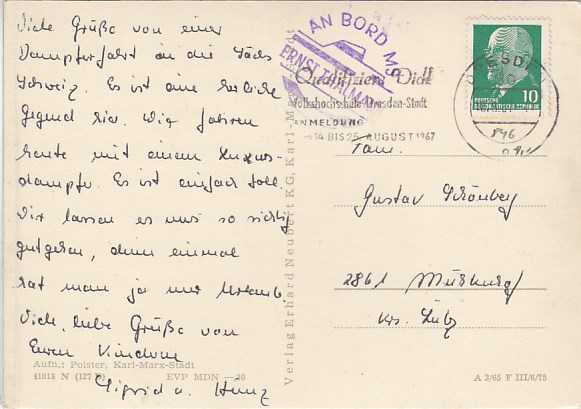 Viele Grüße von einer
Dampferfahrt in die Sächs
Schweiz. Es ist eine herliche
Gegend hier. Wir fahren
heute mit einem Luxus-
dampfer. Es ist einfach toll.
Wir lassen es uns so richtig
gutgehen, denn einmal
hat man ja nur Urlaub.
Viele, liebe Grüße von
Euren Kindern
Sigrid u. Heinz
Aufn.: Polster, Karl-Marx-Stadt
41018 N (127 B) EVP MDN —20
Verlag Erhard Neubert KG, Karl-Marx-Stadt
AN BORD MS
ERNST THÄLMANN
Qualifiziere Dich!
Volkshochschule Dresden-Stadt
ANMELDUNG
14 BIS 25. AUGUST 1967
DRESDEN
10
DEUTSCHE
DEMOKRATISCHE REPUBLIK
Fam.
Gustav Schönberg
2861
Krs. Lübz
A 3/65 F III/6/75